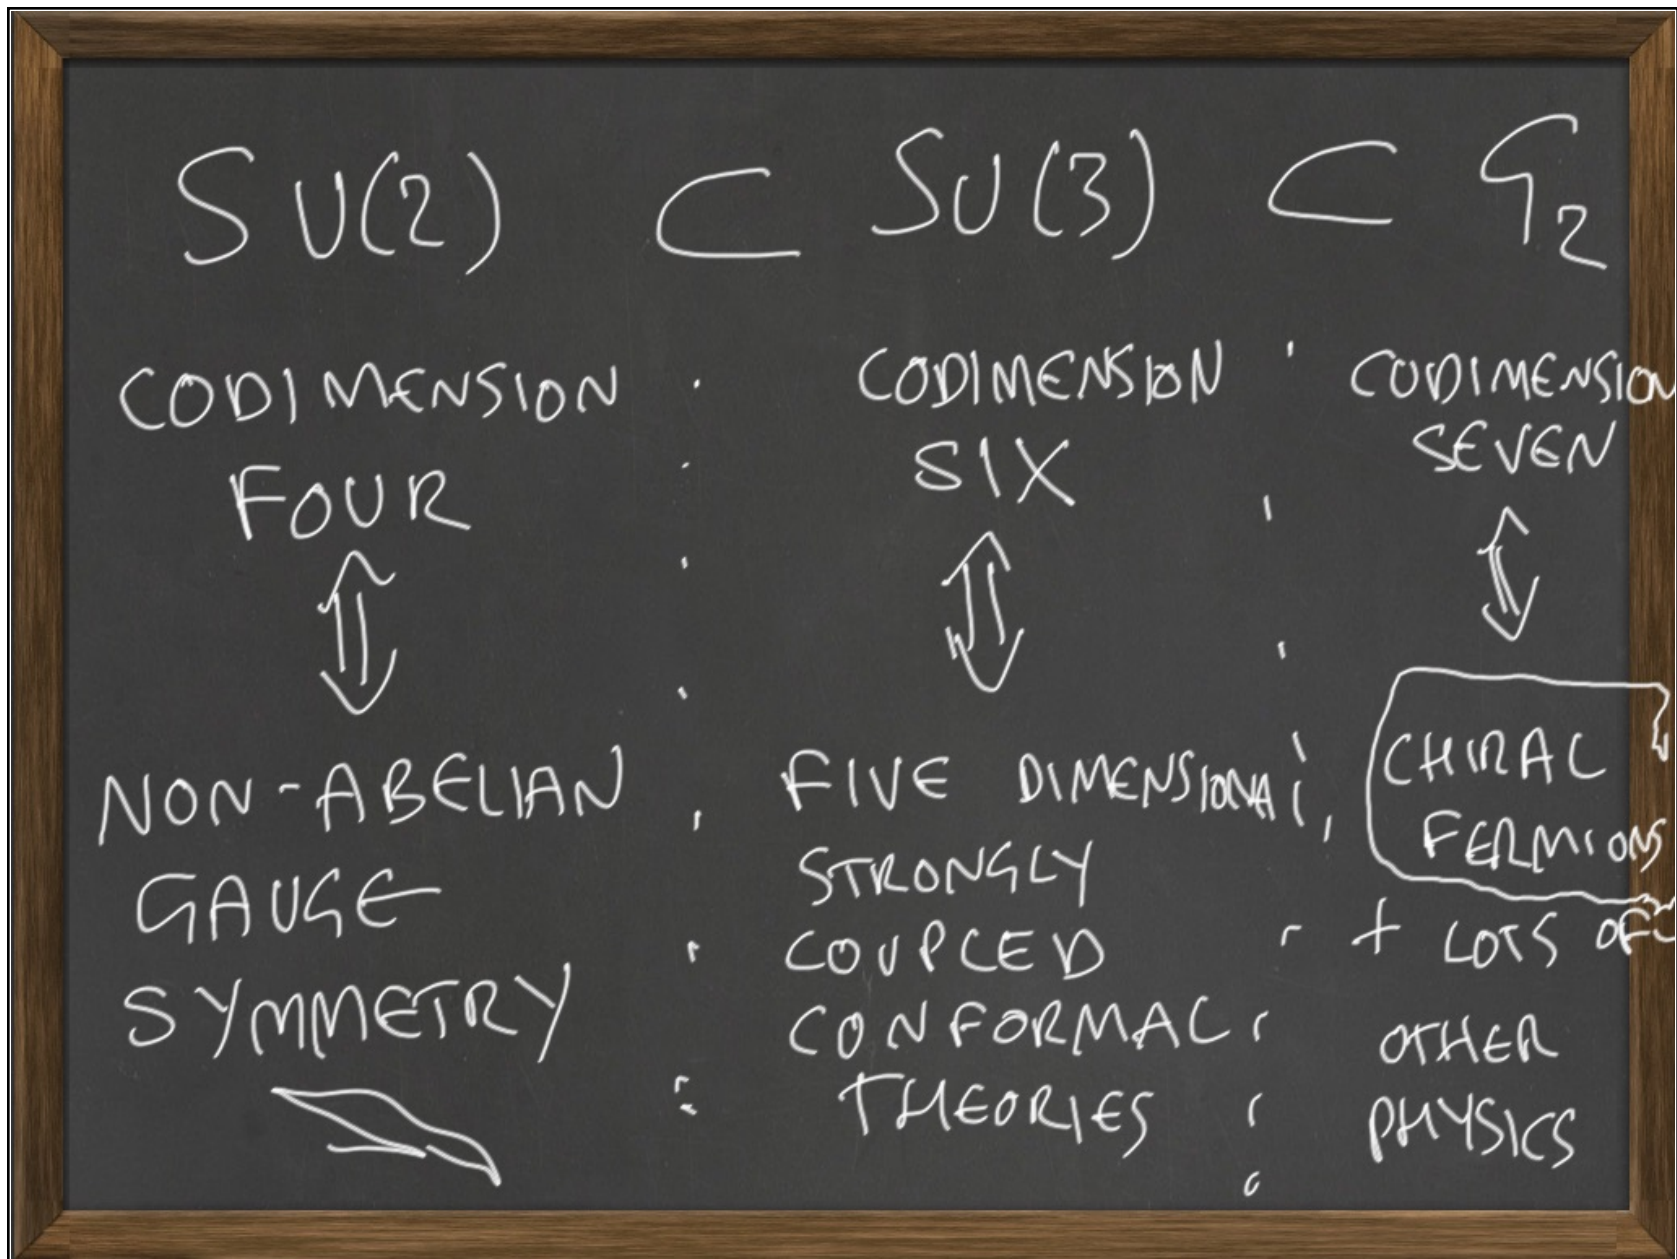 SU(2) ⊂ SU(3) ⊂ G₂
CODIMENSION
FOUR
NON-ABELIAN
GAUGE
SYMMETRY
CODIMENSION
SIX
FIVE DIMENSIONAL
STRONGLY
COUPLED
CONFORMAL
THEORIES
CODIMENSION
SEVEN
CHIRAL
FERMIONS
+ LOTS OF
OTHER
PHYSICS